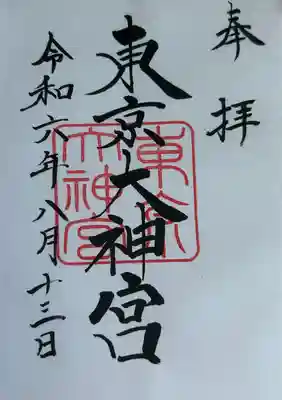 奉拝
東京大神宮
令和六年八月十三日
東京大神宮